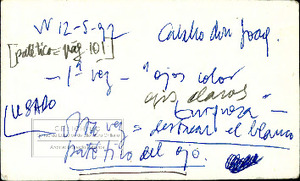 V 12-5-97
Caballo don Joaq.
[patético = pág 10]
- 1ª vez - "ojos color
gris claros
USADO
Europosa -
2ª vez = destacar el blanco
patético del ojo.